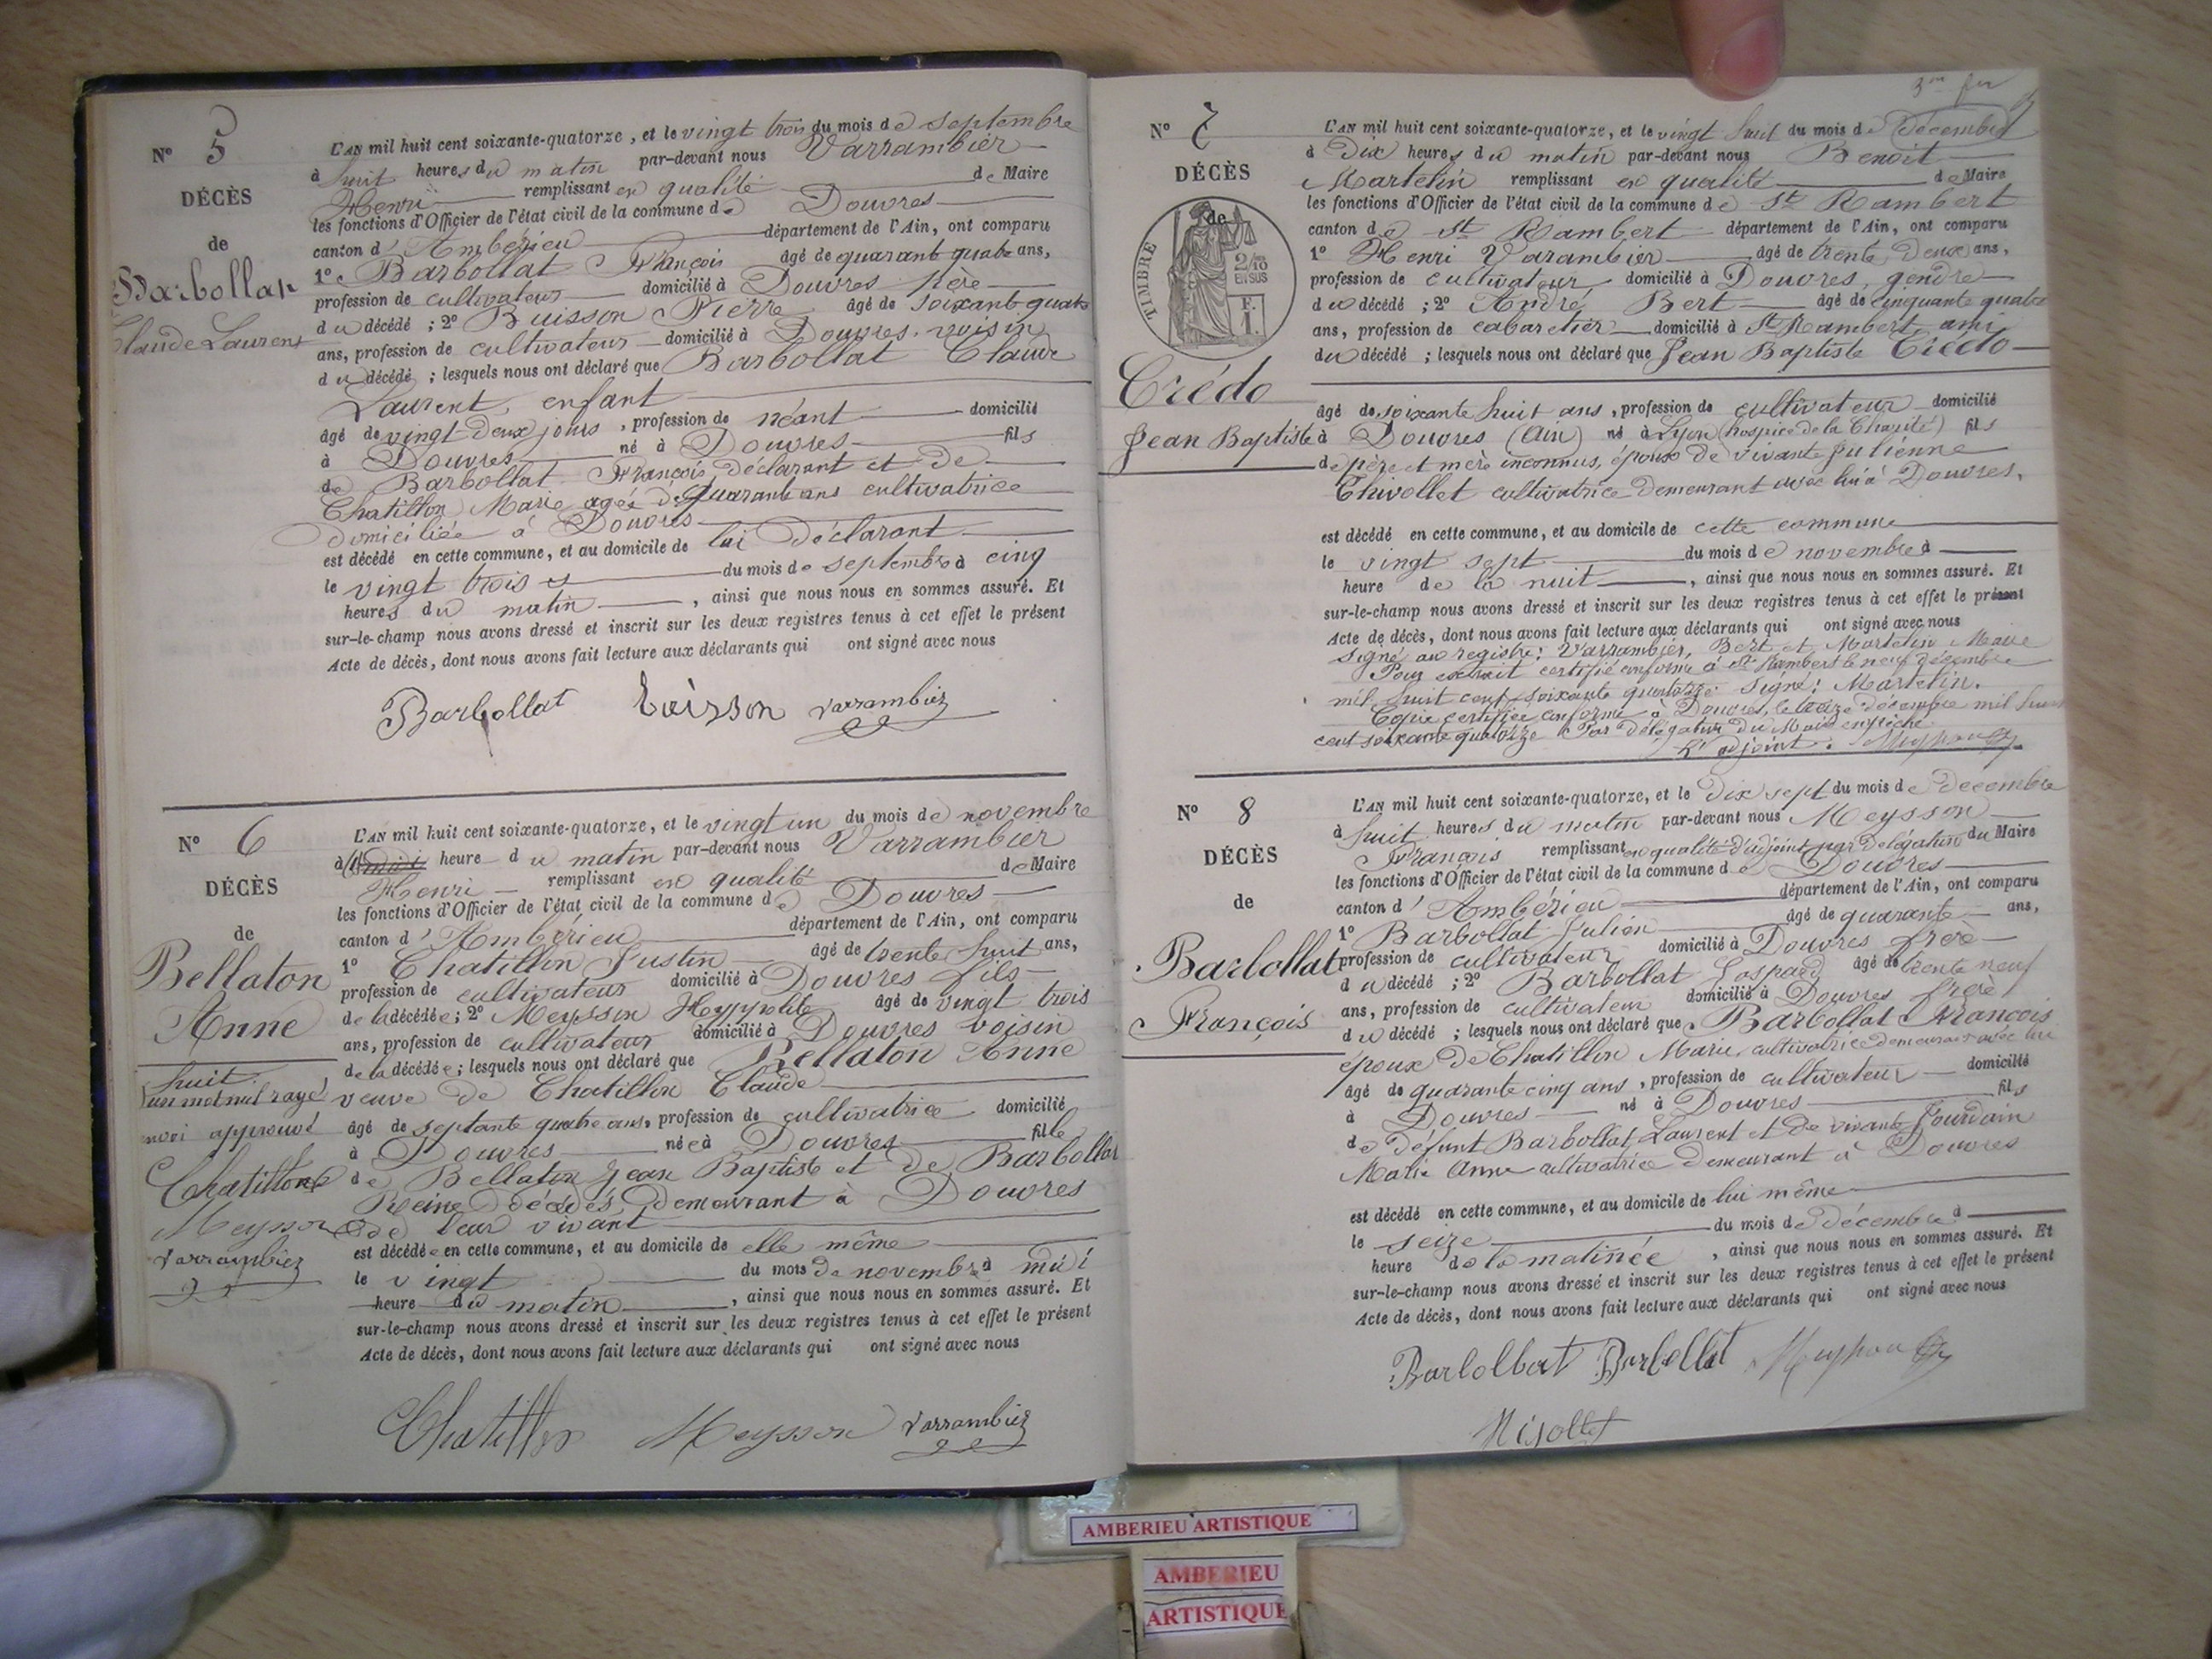 N° 5
DÉCÈS
de
Barbollat
Claude Laurent
L'AN mil huit cent soixante-quatorze, et le vingt trois du mois de septembre
à huit heures du matin par-devant nous Varrambier
Henri remplissant en qualité de Maire
les fonctions d'Officier de l'état civil de la commune de Douvres
canton d'Ambérieu département de l'Ain, ont comparu
1° Barbollat François âgé de quarante quatre ans,
profession de cultivateur domicilié à Douvres père
du décédé ; 2° Buisson Pierre âgé de soixante quatre
ans, profession de cultivateur domicilié à Douvres voisin
du décédé ; lesquels nous ont déclaré que Barbollat Claude
Laurent, enfant
âgé de vingt deux jours, profession de néant domicilié
à Douvres né à Douvres fils
de Barbollat François déclarant et de
Chatillon Marie agée de quarante ans cultivatrice
domiciliée à Douvres
est décédé en cette commune, et au domicile de lui déclarant
le vingt trois du mois de septembre à cinq
heures du matin, ainsi que nous nous en sommes assuré. Et
sur-le-champ nous avons dressé et inscrit sur les deux registres tenus à cet effet le présent
Acte de décès, dont nous avons fait lecture aux déclarants qui ont signé avec nous
Barbollat Buisson Varrambier
N° 6
DÉCÈS
de
Bellaton
Anne
huit
un mot nul rayé
approuvé
Chatillon
Meysson
Varrambier
L'AN mil huit cent soixante-quatorze, et le vingt un du mois de novembre
à midi heure du matin par-devant nous Varrambier
Henri remplissant en qualité de Maire
les fonctions d'Officier de l'état civil de la commune de Douvres
canton d'Ambérieu département de l'Ain, ont comparu
1° Chatillon Justin âgé de trente huit ans,
profession de cultivateur domicilié à Douvres fils
de la décédée ; 2° Meysson Hyppolite âgé de vingt trois
ans, profession de cultivateur domicilié à Douvres voisin
de la décédée ; lesquels nous ont déclaré que Bellaton Anne
veuve de Chatillon Claude
âgé de septante quatre ans, profession de cultivatrice domicilié
à Douvres née à Douvres fille
de Bellaton Jean Baptiste et de Barbollat
Reine décédés, demeurant à Douvres
de leur vivant
est décédée en cette commune, et au domicile de elle même
le vingt du mois de novembre à midi
heure du matin, ainsi que nous nous en sommes assuré. Et
sur-le-champ nous avons dressé et inscrit sur les deux registres tenus à cet effet le présent
Acte de décès, dont nous avons fait lecture aux déclarants qui ont signé avec nous
Chatillon Meysson Varrambier
N° 7
DÉCÈS
de
TIMBRE
2/10
EN SUS
F.
1.
Crédo
Jean Baptiste
L'AN mil huit cent soixante-quatorze, et le vingt huit du mois de décembre
à Dix heures du matin par-devant nous Benoit
Martelin remplissant en qualité de Maire
les fonctions d'Officier de l'état civil de la commune de St Rambert
canton de St Rambert département de l'Ain, ont comparu
1° Henri Varambier âgé de trente deux ans,
profession de cultivateur domicilié à Douvres, gendre
du décédé ; 2° André Bert âgé de cinquante quatre
ans, profession de cabaretier domicilié à St Rambert, ami
du décédé ; lesquels nous ont déclaré que Jean Baptiste Crédo
âgé de soixante huit ans, profession de cultivateur domicilié
à Douvres (Ain) né à Lyon (hospice de la Charité) fils
de père et mère inconnus, époux de vivante Julienne
Chivollet cultivatrice demeurant avec lui à Douvres,
est décédé en cette commune, et au domicile de cette commune
le vingt sept du mois de novembre à
heure de la nuit, ainsi que nous nous en sommes assuré. Et
sur-le-champ nous avons dressé et inscrit sur les deux registres tenus à cet effet le présent
Acte de décès, dont nous avons fait lecture aux déclarants qui ont signé avec nous
Signé au registre: Varrambier, Bert et Martelin Maire
Pour extrait certifié conforme à St Rambert le neuf décembre
mil huit cent soixante quatorze. Signé: Martelin.
Copie certifiée conforme à Douvres, le treize décembre mil huit
cent soixante quatorze Par délégation du Maire empêché
L'adjoint: Meysson
N° 8
DÉCÈS
de
Barbollat
François
L'AN mil huit cent soixante-quatorze, et le Dix sept du mois de Decembre
à huit heures du matin par-devant nous Meysson
François remplissant en qualité d'adjoint par délégation du Maire
les fonctions d'Officier de l'état civil de la commune de Douvres
canton d'Ambérieu département de l'Ain, ont comparu
1° Barbollat Julien âgé de quarante ans,
profession de cultivateur domicilié à Douvres frere
du décédé ; 2° Barbollat Gaspard âgé de trente neuf
ans, profession de cultivateur domicilié à Douvres frère
du décédé ; lesquels nous ont déclaré que Barbollat François
époux de Chatillon Marie, cultivatrice demeurant avec lui
âgé de quarante cinq ans, profession de cultivateur domicilié
à Douvres né à Douvres fils
de défunt Barbollat Laurent et de vivante Jourdain
Marie Anne cultivatrice demeurant à Douvres
est décédé en cette commune, et au domicile de lui même
le seize du mois de décembre à
heure de la matinée, ainsi que nous nous en sommes assuré. Et
sur-le-champ nous avons dressé et inscrit sur les deux registres tenus à cet effet le présent
Acte de décès, dont nous avons fait lecture aux déclarants qui ont signé avec nous
Barbollat Barbollat Meysson
AMBERIEU ARTISTIQUE
AMBERIEU
ARTISTIQUE